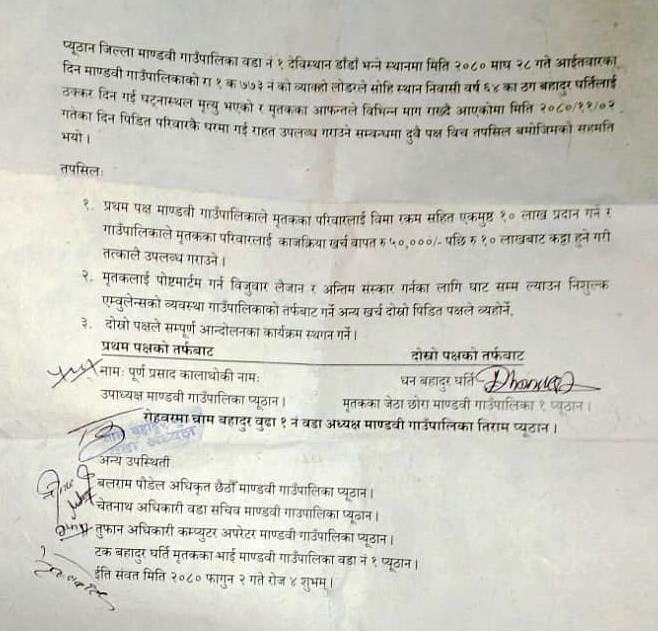 प्यूठान जिल्ला माण्डवी गाउँपालिका वडा नं १ देविस्थान डाँडाँ भन्ने स्थानमा मिति २०८० माघ २८ गते आईतवारका
दिन माण्डवी गाउँपालिकाको रा १ क ७७३ नं को व्याक्हो लोडरले सोहि स्थान निवासी वर्ष ६४ का ठग बहादुर घर्तिलाई
ठक्कर दिन गई घट्नास्थल मृत्यु भएको र मृतकका आफन्तले विभिन्न माग राख्दै आएकोमा मिति २०८०/११/०२
गतेका दिन पिडित परिवारकै घरमा गई राहत उपलब्ध गराउने सम्बन्धमा दुवै पक्ष विच तपसिल बमोजिमको सहमति
भयो ।
तपसिलः
१. प्रथम पक्ष माण्डवी गाउँपालिकाले मृतकका परिवारलाई विमा रकम सहित एकमुष्ठ १० लाख प्रदान गर्ने र
गाउँपालिकाले मृतकका परिवारलाई काजक्रिया खर्च वापत रु ५०,०००/- पछि रु १० लाखबाट कट्टा हुने गरी
तत्कालै उपलब्ध गराउने ।
२. मृतकलाई पोष्टमार्टम गर्न विजुवार लैजान र अन्तिम संस्कार गर्नका लागि घाट सम्म ल्याउन निशुल्क
एम्वुलेन्सको व्यवस्था गाउँपालिकाको तर्फबाट गर्ने अन्य खर्च दोस्रो पिडित पक्षले व्यहोर्ने,
३. दोस्रो पक्षले सम्पूर्ण आन्दोलनका कार्यक्रम स्थगन गर्ने ।
प्रथम पक्षको तर्फबाट दोस्रो पक्षको तर्फबाट
नामः पूर्ण प्रसाद कालाथोकी नामः धन बहादुर घर्ति
उपाध्यक्ष माण्डवी गाउँपालिका प्यूठान । मृतकका जेठा छोरा माण्डवी गाउँपालिका १ प्यूठान ।
रोहवरमा चाम बहादुर वुडा १ नं वडा अध्यक्ष माण्डवी गाउँपालिका तिराम प्यूठान ।
अन्य उपस्थिती
बलराम पौडेल अधिकृत छैठौँ माण्डवी गाउँपालिका प्यूठान ।
चेतनाथ अधिकारी वडा सचिव माण्डवी गाउपालिका प्यूठान ।
तुफान अधिकारी कम्प्युटर अपरेटर माण्डवी गाउँपालिका प्यूठान ।
टक बहादुर घर्ति मृतकका भाई माण्डवी गाउँपालिका वडा नं १ प्यूठान ।
ईति संवत मिति २०८० फागुन २ गते रोज ४ शुभम् ।